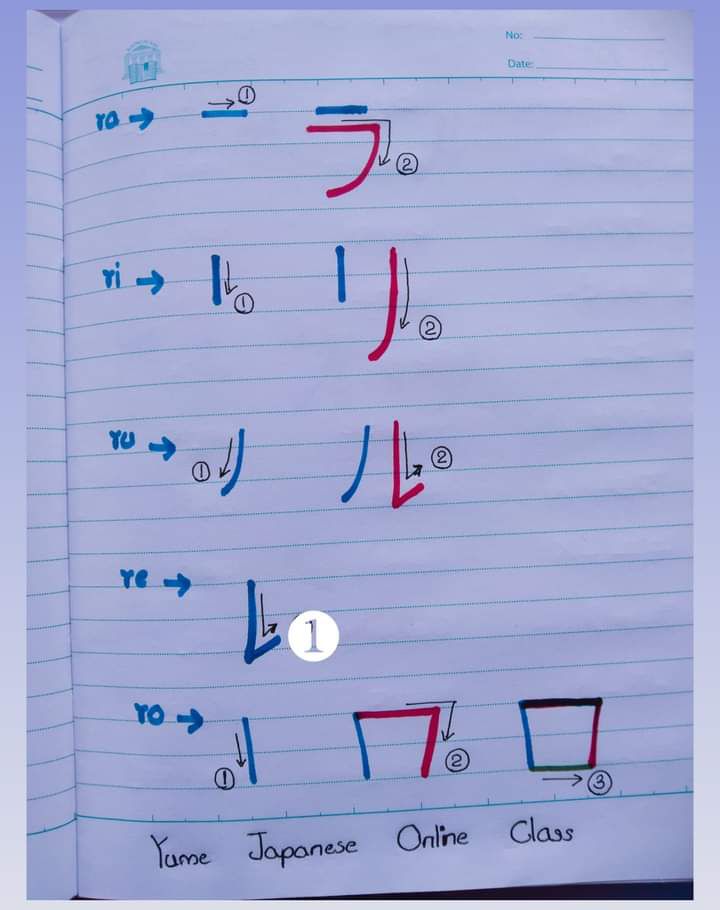 No:
Date:
ra → ① ラ ②
ri → ① リ ②
ru → ① ル ②
re → レ 1
ro → ① ② ロ ③
Yume Japanese Online Class